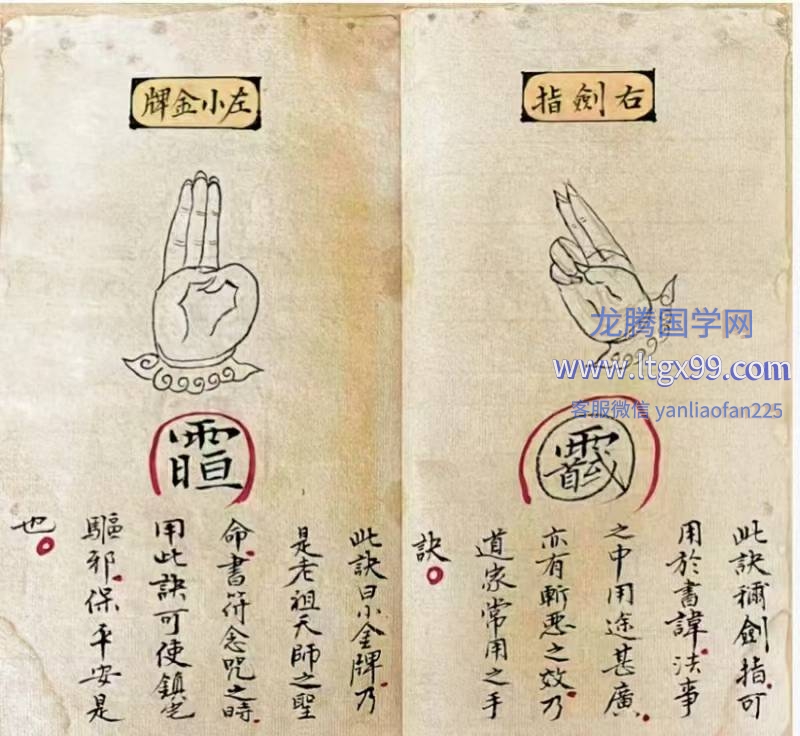 右劍指
此訣稱劍指可
用於書諱法事
之中用途甚廣
亦有斬惡之效乃
道家常用之手
訣。
左小金牌
此訣曰小金牌乃
是老祖天師之聖
命書符念咒之時
用此訣可使鎮宅
驅邪保平安是
也。
龙腾国学网
www.ltgx99.com
客服微信 yanliaofan225